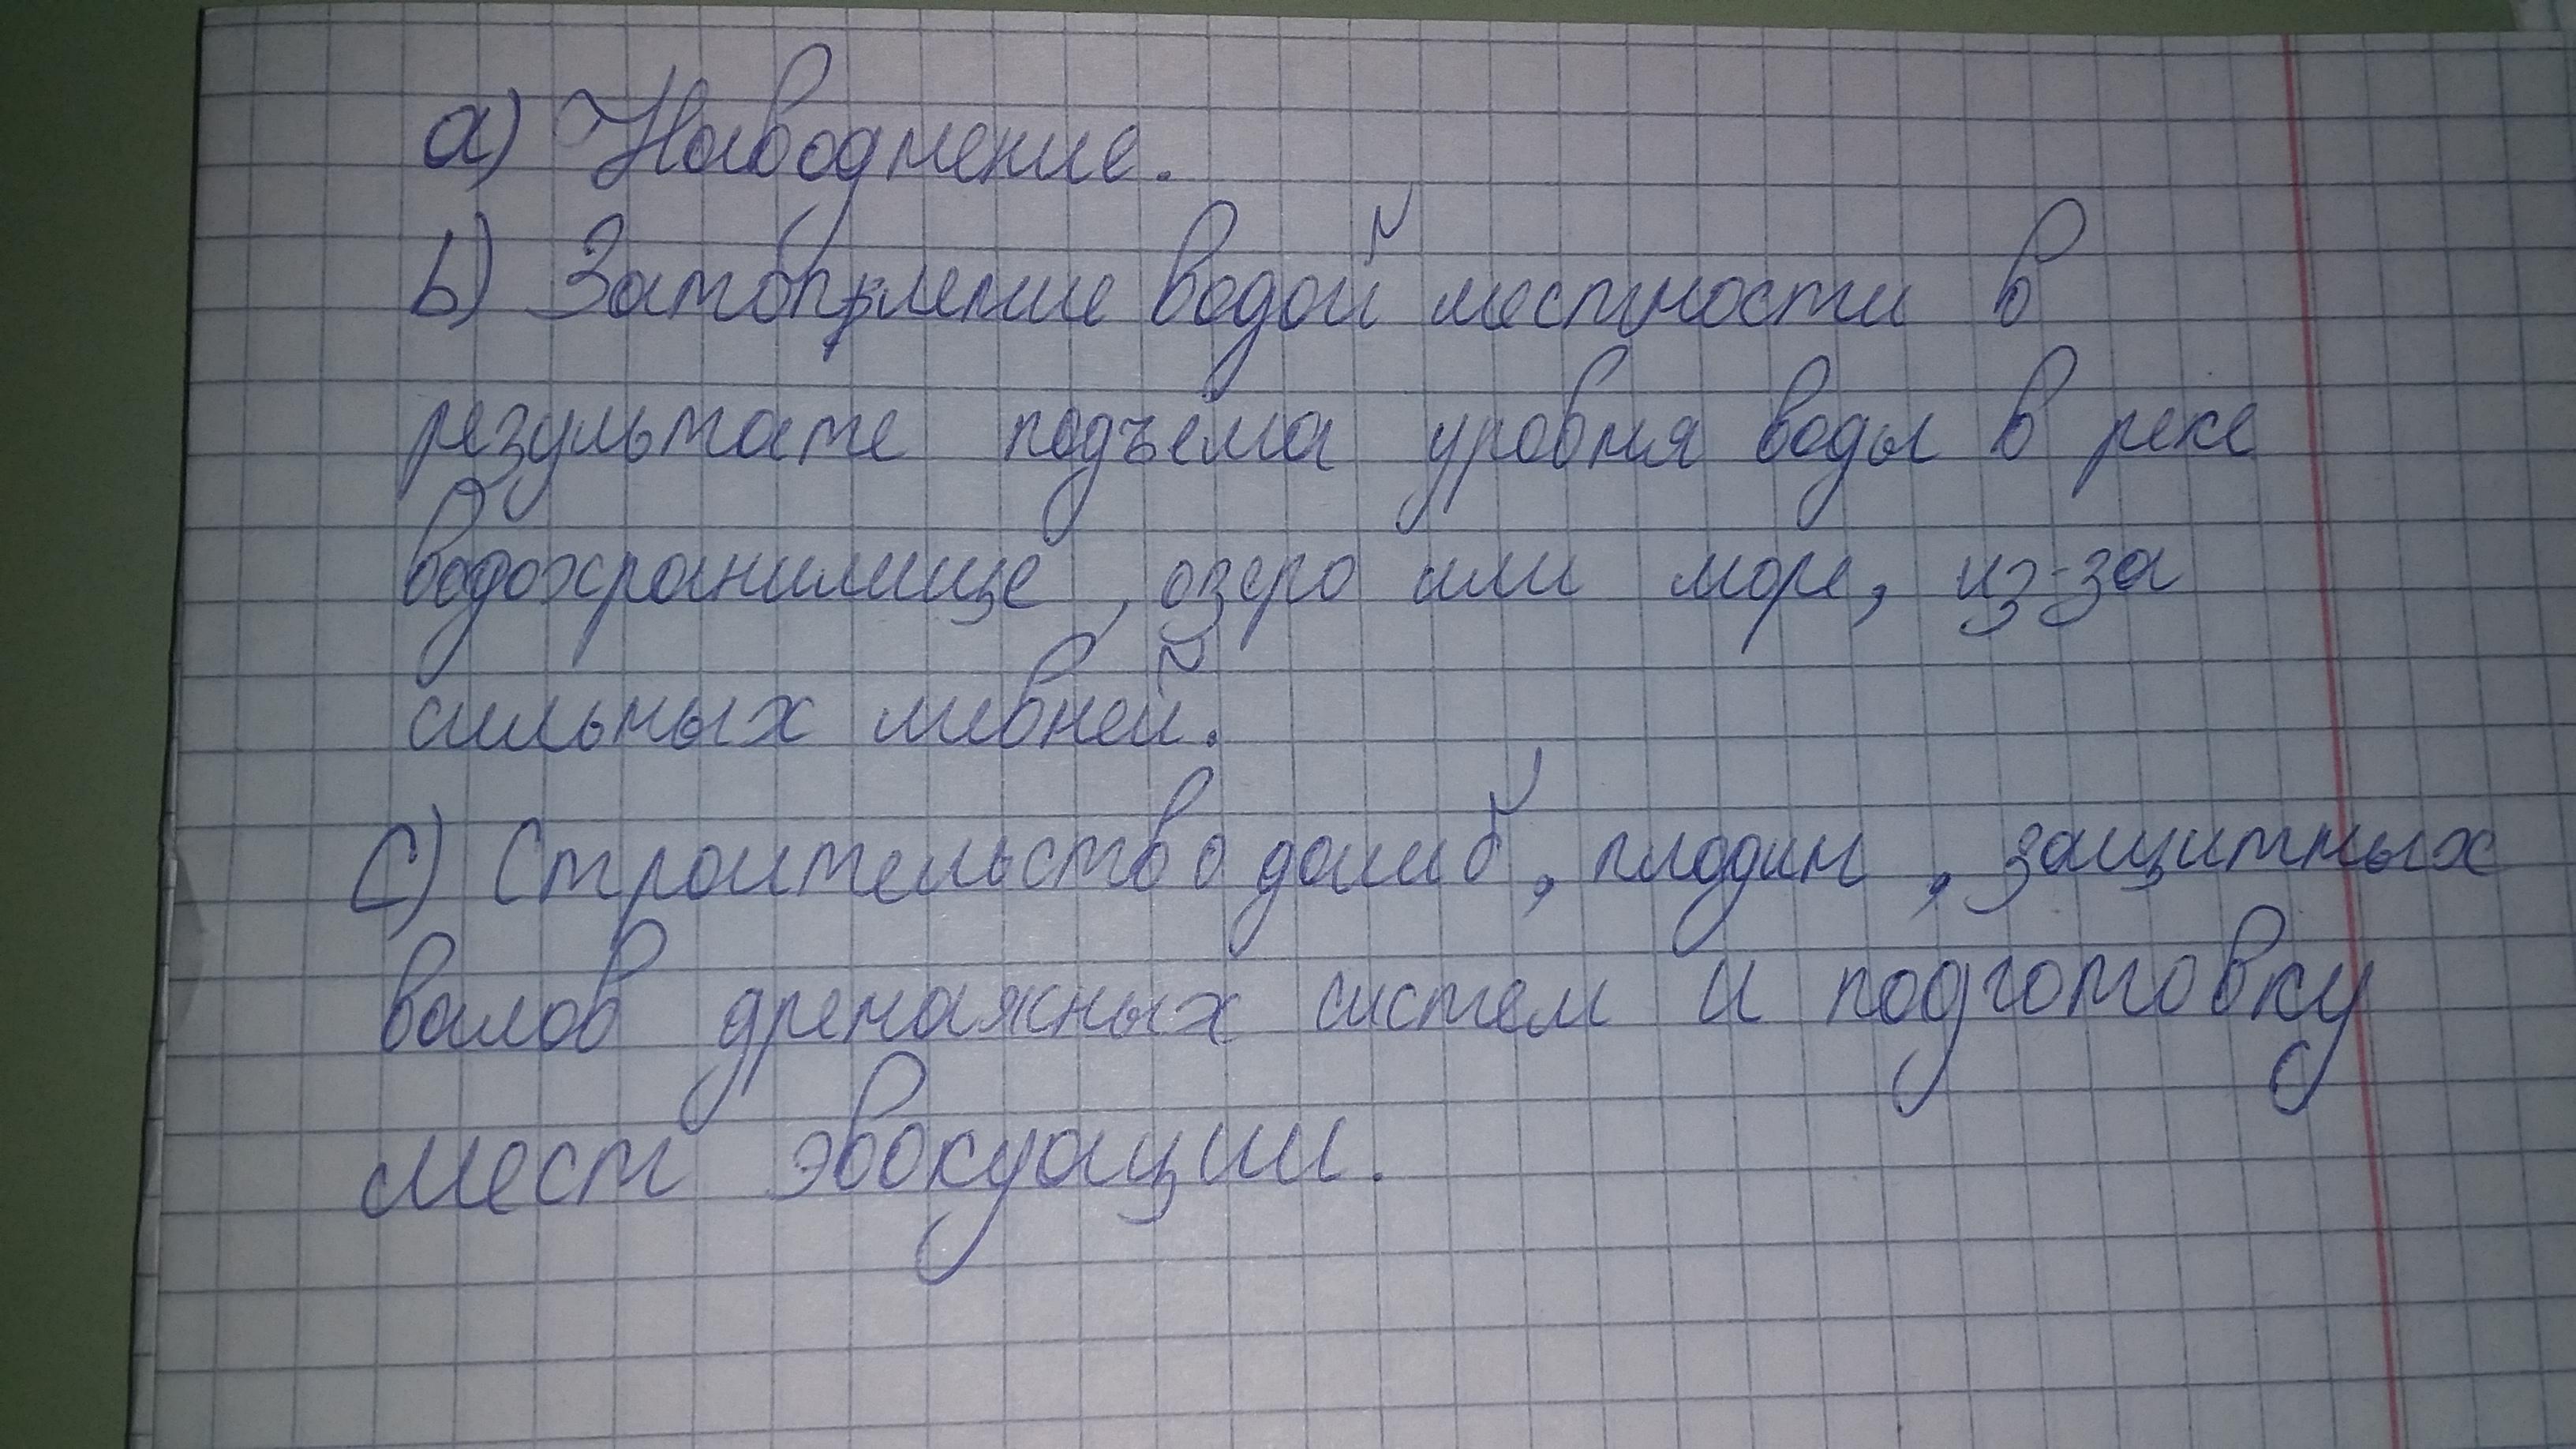 а) Наводнение.
b) Затопление водой местности в
результате подъёма уровня воды в реке
водохранилище, озеро или море, из-за
сильных ливней.
С) Строительство дамб, , защитных
валов дренажных систем и подготовку
мест эвокуации.